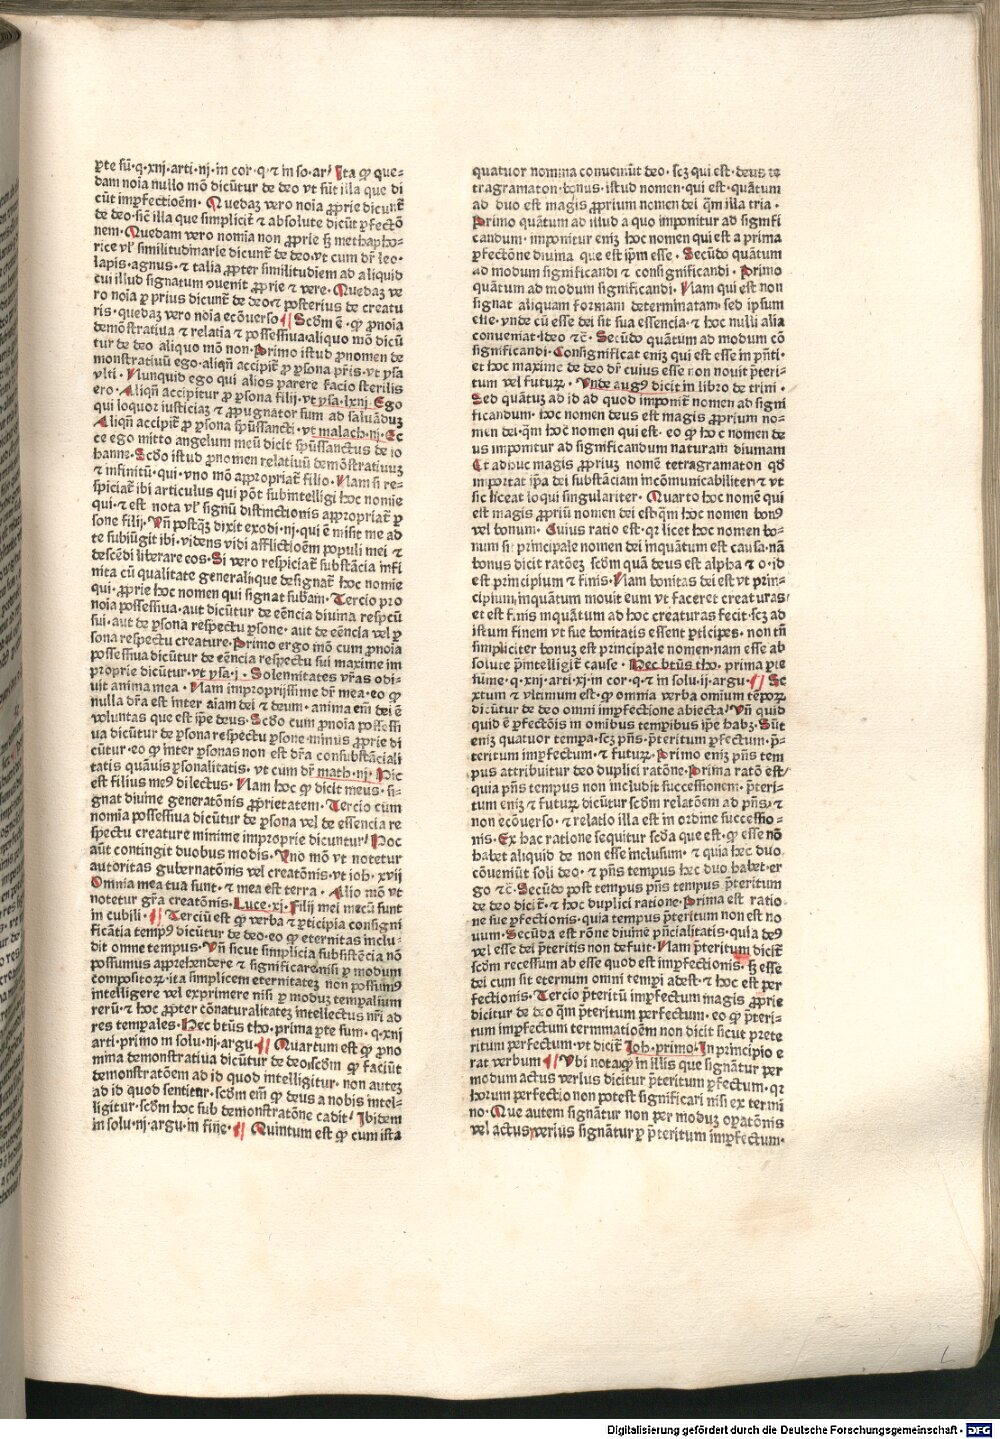 ꝑte sū·q·xnj·arti·nj·in cor·q·⁊ in so·ar̄ Ita ꝙ que⸗
dam noīa nullo mō dicūtur de deo vt sūt illa que di
cūt imꝑfectioēm· Quedaꝫ vero noīa ꝓprie dicunt̄
de deo·sic̄ illa que simplicit̄ ⁊ absolute dicūt ꝑfectō
nem·Quedam vero nomīa non ꝓprie sꝫ methapho⸗
rice vl̄ similitudinarie dicunt̄ de deo·vt cum dr̄ leo·
lapis·agnus·⁊ talia ꝓpter similitudīem ad aliquid
cui illud signatum ↄuenit ꝓprie ⁊ vere·Quedaꝫ ve
ro noīa ꝑ prius dicunt̄ de deo·⁊ posterius de creatu
ris·quedaꝫ vero noīa ecōuerso ¶ Scd̄m ē·ꝙ ꝓnoīa
demōstratiua ⁊ relatia ⁊ possessiua·aliquo mō dicū
tur de deo aliquo mō non·Primo istud ꝓnomen de
monstratiuū ego·aliqn̄ accipit̄ ꝓ ꝑsona pr̄is·vt ysa
vlti·Nunquid ego qui alios parere facio sterilis
ero·Aliqn̄ accipitur ꝓ ꝑsona filij·vt ysa·lxnj·Ego
qui loquoꝛ iusticiaꝫ ⁊ ꝓpugnator sum ad saluāduꝫ
Aliqn̄ accipit̄ ꝓ ꝑsona spūssancti·vt malach·nj·Ec
ce ego mitto angelum meū dicit spūssanctus de io
hanne·Scd̄o istud ꝓnomen relatiuū demōstratiuuꝫ
⁊ infinitū·qui·vno mō aꝓpropriat̄ filio·Nam si re⸗
spiciat̄ ibi articulus qui pōt subintelligi hoc nomīe
qui·⁊ est nota vl̄ signū distinctionis aꝓpropriat̄ ꝑ
sone filij·Vn̄ postqꝫ dixit exodi·nj·qui ē misit me ad
te subiūgit ibi·videns vidi afflictioēm populi mei ⁊
descēdi liberare eos·Si vero respiciat̄ substācia infi
nita cū qualitate generali·que designat̄ hoc nomīe
qui·ꝓprie hoc nomen qui signat sub̄am·Tercio pro
noīa possessiua·aut dicūtur de eēncia diuina respcū
sui·aut de ꝑsona respectu ꝑsone·aut de eēncia vel ꝑ
sona respectu creature·Primo ergo mō cum ꝓnoīa
possessiua dicūtur de eēncia respectu sui maxime im
proprie dicūtur·vt ysa·j·Solennitates vr̄as odi⸗
uit anima mea·Nam improprijssime dr̄ mea·eo ꝙ
nulla dr̄a est inter aīam dei ⁊ deum·anima em̄ dei ē
voluntas que est ip̄e deus·Scd̄o cum ꝓnoīa possessi
ua dicūtur de ꝑsona respectu ꝑsone·minus ꝓprie di
cūtur·eo ꝙ inter ꝑsonas non est dr̄a consubstāciali
tatis quāuis ꝑsonalitatis·vt cum dr̄ math·nj·Hic
est filius meꝰ dilectus·Nam hoc ꝙ dicit meus·si⸗
gnat diuine generatōnis ꝓprietatem·Tercio cum
nomīa possessiua dicūtur de ꝑsona vel de essencia re
spectu creature minime improprie dicuntur·Hoc
aūt contingit duobus modis·Vno mō vt notetur
autoritas gubernatōnis vel creatōnis·vt ioh·xvij
Omnia mea tua sunt·⁊ mea est terra·Alio mō vt
notetur gr̄a creatōnis·Luce·xj·Filij mei mecū sunt
in cubili·¶ Terciū est ꝙ verba ⁊ ꝑticipia consigni
ficātia tempꝰ dicūtur de deo·eo ꝙ eternitas inclu⸗
dit omne tempus·Vn̄ sicut simplicia subsistēcia nō
possumus apꝓrehendere ⁊ significare·nisi ꝑ modum
compositoꝝ·ita simplicem eternitateꝫ non possumꝰ
intelligere vel exprimere nisi ꝑ moduꝫ tempalium
rerū·⁊ hoc ꝓpter cōnaturalitateꝫ intellectus nr̄i ad
res tempales·Hec btūs tho·prima ꝑte sum·q·xnj
arti·primo in solu·nj·argu·¶ Quartum est ꝙ ꝓno
mina demōstratiua dicūtur de deo·scd̄m ꝙ faciūt
demonstratōem ad id quod intelligitur·non auteꝫ
ad id quod sentitur·scd̄m em̄ ꝙ deus a nobis intel⸗
ligitur·scd̄m hoc sub demonstratōne cadit·Ibidem
in solu·nj·argu·in fine·¶ Quintum est ꝙ cum ista
quatuor nomina conueniūt deo·scꝫ qui est·deus te
tragramaton·bonus·istud nomen·qui est·quātum
ad duo est magis ꝓprium nomen dei q̄m illa tria·
Primo quātum ad illud a quo imponitur ad signifi
candum·imponitur eniꝫ hoc nomen qui est a prima
ꝑfectōne diuina que est ip̄m esse·Secūdo quātum
ad modum significandi ⁊ consignificandi·Primo
quātum ad modum significandi·Nam qui est non
signat aliquam formam determinatam·sed ipsum
esse·vnde cū esse dei sit sua essencia·⁊ hoc nulli alia
conueniat·Ideo ⁊c̄·Secūdo quātum ad modum cō
significandi·Consignificat eniꝫ qui est esse in p̄nti·
et hoc maxime de deo dr̄ cuius esse non nouit p̄teri⸗
tum vel futuꝝ·Vnde augꝰ dicit in libro de trini·
Sed quātuꝫ ad id ad quod imponit̄ nomen ad signi
ficandum·hoc nomen deus est magis ꝓprium no⸗
men dei·q̄m hoc nomen qui est·eo ꝙ hoc nomen de
us imponitur ad significandum naturam diuinam
Et adhuc magis ꝓpriuꝫ nomē tetragramaton qd̄
importat ip̄a dei substāciam incōmunicabiliter·⁊ vt
sic liceat loqui singulariter·Quarto hoc nomē qui
est magis ꝓpriū nomen dei est·q̄m hoc nomen bonꝰ
vel bonum·Cuius ratio est·qꝛ licet hoc nomen bo⸗
num sit principale nomen dei inquātum est causa·nā
bonus dicit ratōeꝫ scd̄m quā deus est alpha ⁊ o·id
est principium ⁊ finis·Nam bonitas dei est vt prin⸗
cipium·inquātum mouit eum vt faceret creaturas
et est finis inquātum ad hoc creaturas fecit·scꝫ ad
istum finem vt sue bonitatis essent ꝑticipes·non tn̄
simpliciter bonuꝫ est principale nomen·nam esse ab
solute p̄intelligit̄ cause·Hec btūs tho·prima ꝑte
sūme·q·xnj·arti·xj·in cor·q·⁊ in solu·ij·argu·¶ Se
xtum ⁊ vltimum est·ꝙ omnia verba omīum tēporꝝ
dicūtur de deo omni imꝑfectione abiecta·Vn̄ quid
quid ē ꝑfectōis in omībus tempībus ip̄e habꝫ·Sūt
eniꝫ quatuor tempa·scꝫ pn̄s·p̄teritum ꝑfectum·p̄⸗
teritum imꝑfectum·⁊ futuꝝ·Primo eniꝫ pn̄s tem
pus attribuitur deo duplici ratōne·Prima ratō est
quia pn̄s tempus non includit successionem·p̄teri⸗
tum eniꝫ ⁊ futuꝝ dicūtur scd̄m relatōem ad pn̄s·⁊
non ecōuerso·⁊ relatio illa est in ordine successio⸗
nis·Ex hac ratione sequitur scd̄a que est·ꝙ esse nō
habet aliquid de non esse inclusum·⁊ quia hec duo
cōueniūt soli deo·⁊ pn̄s tempus hec duo habet·er
go ⁊c̄·Secūdo post tempus pn̄s tempus p̄teritum
de deo dicit̄·⁊ hoc duplici ratione·Prima est ratio
ne sue ꝑfectionis·quia tempus p̄teritum non est no
uum·Secūda est rōne diuine pn̄cialitatis·quia deꝰ
vel esse dei p̄teritis non defuit·Nam p̄teritum dicit̄
scd̄m recessum ab esse quod est imꝑfectionis·sꝫ esse
dei cum sit eternum omni tempi adest·⁊ hoc est per
fectionis·Tercio p̄teritū imꝑfectum magis ꝓprie
dicitur de deo q̄m p̄teritum perfectum·eo ꝙ p̄teri⸗
tum imꝑfectum terminatioēm non dicit sicut prete
ritum perfectum·vt dicit̄ Ioh·primo·In principio e
rat verbum ¶ Vbi nota·ꝙ in illis que signātur per
modum actus verius dicitur p̄teritum ꝑfectum·qꝛ
horum perfectio non potest significari nisi ex termi
no·Que autem signātur non per moduꝫ oꝑatōnis
vel actus verius signātur ꝑ p̄teritum imꝑfectum·
Digitalisierung gefördert durch die Deutsche Forschungsgemeinschaft - DFG